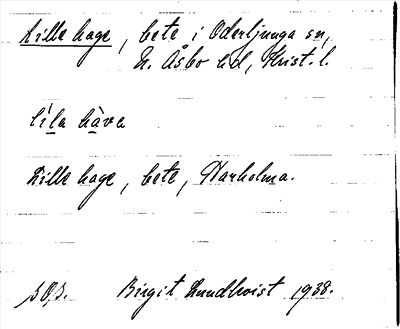 Lille hage, bete i Oderljunga sn,
N. Åsbo hd, Krist. l.
lila hava
Lille hage, bete, Harholma.
s. 03. Birgit Lundkvist 1938.